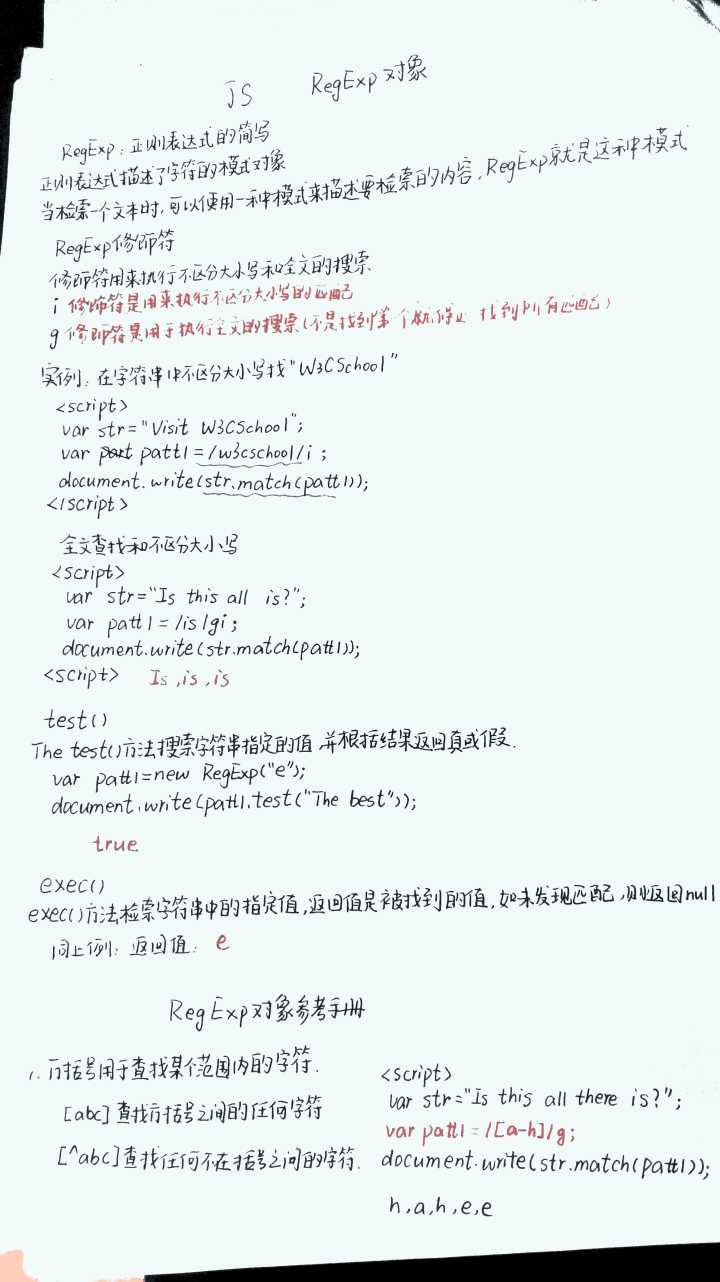 JS RegExp对象
RegExp：正则表达式的简写
正则表达式描述了字符的模式对象
当检索一个文本时，可以使用一种模式来描述要检索的内容，RegExp就是这种模式
RegExp修饰符
修饰符用来执行不区分大小写和全文的搜索
i 修饰符是用来执行不区分大小写的匹配
g 修饰符是用于执行全文的搜索(不是找到第一个就停止 找到所有匹配)
实例：在字符串中不区分大小写找"W3CSchool"
<script>
var str="Visit W3CSchool";
var patt1=/w3cschool/i;
document.write(str.match(patt1));
</script>
全文查找和不区分大小写
<script>
var str="Is this all is?";
var patt1=/is/gi;
document.write(str.match(patt1));
<script> Is,is,is
test()
The test()方法搜索字符串指定的值,并根据结果返回真或假.
var patt1=new RegExp("e");
document.write(patt1.test("The best"));
true
exec()
exec()方法检索字符串中的指定值,返回值是被找到的值,如未发现匹配,则返回null
同上例：返回值： e
RegExp对象参考手册
1. 方括号用于查找某个范围内的字符.
[abc]查找方括号之间的任何字符
[^abc]查找任何不在括号之间的字符.
<script>
var str="Is this all there is?";
var patt1=/[a-h]/g;
document.write(str.match(patt1));
h,a,h,e,e